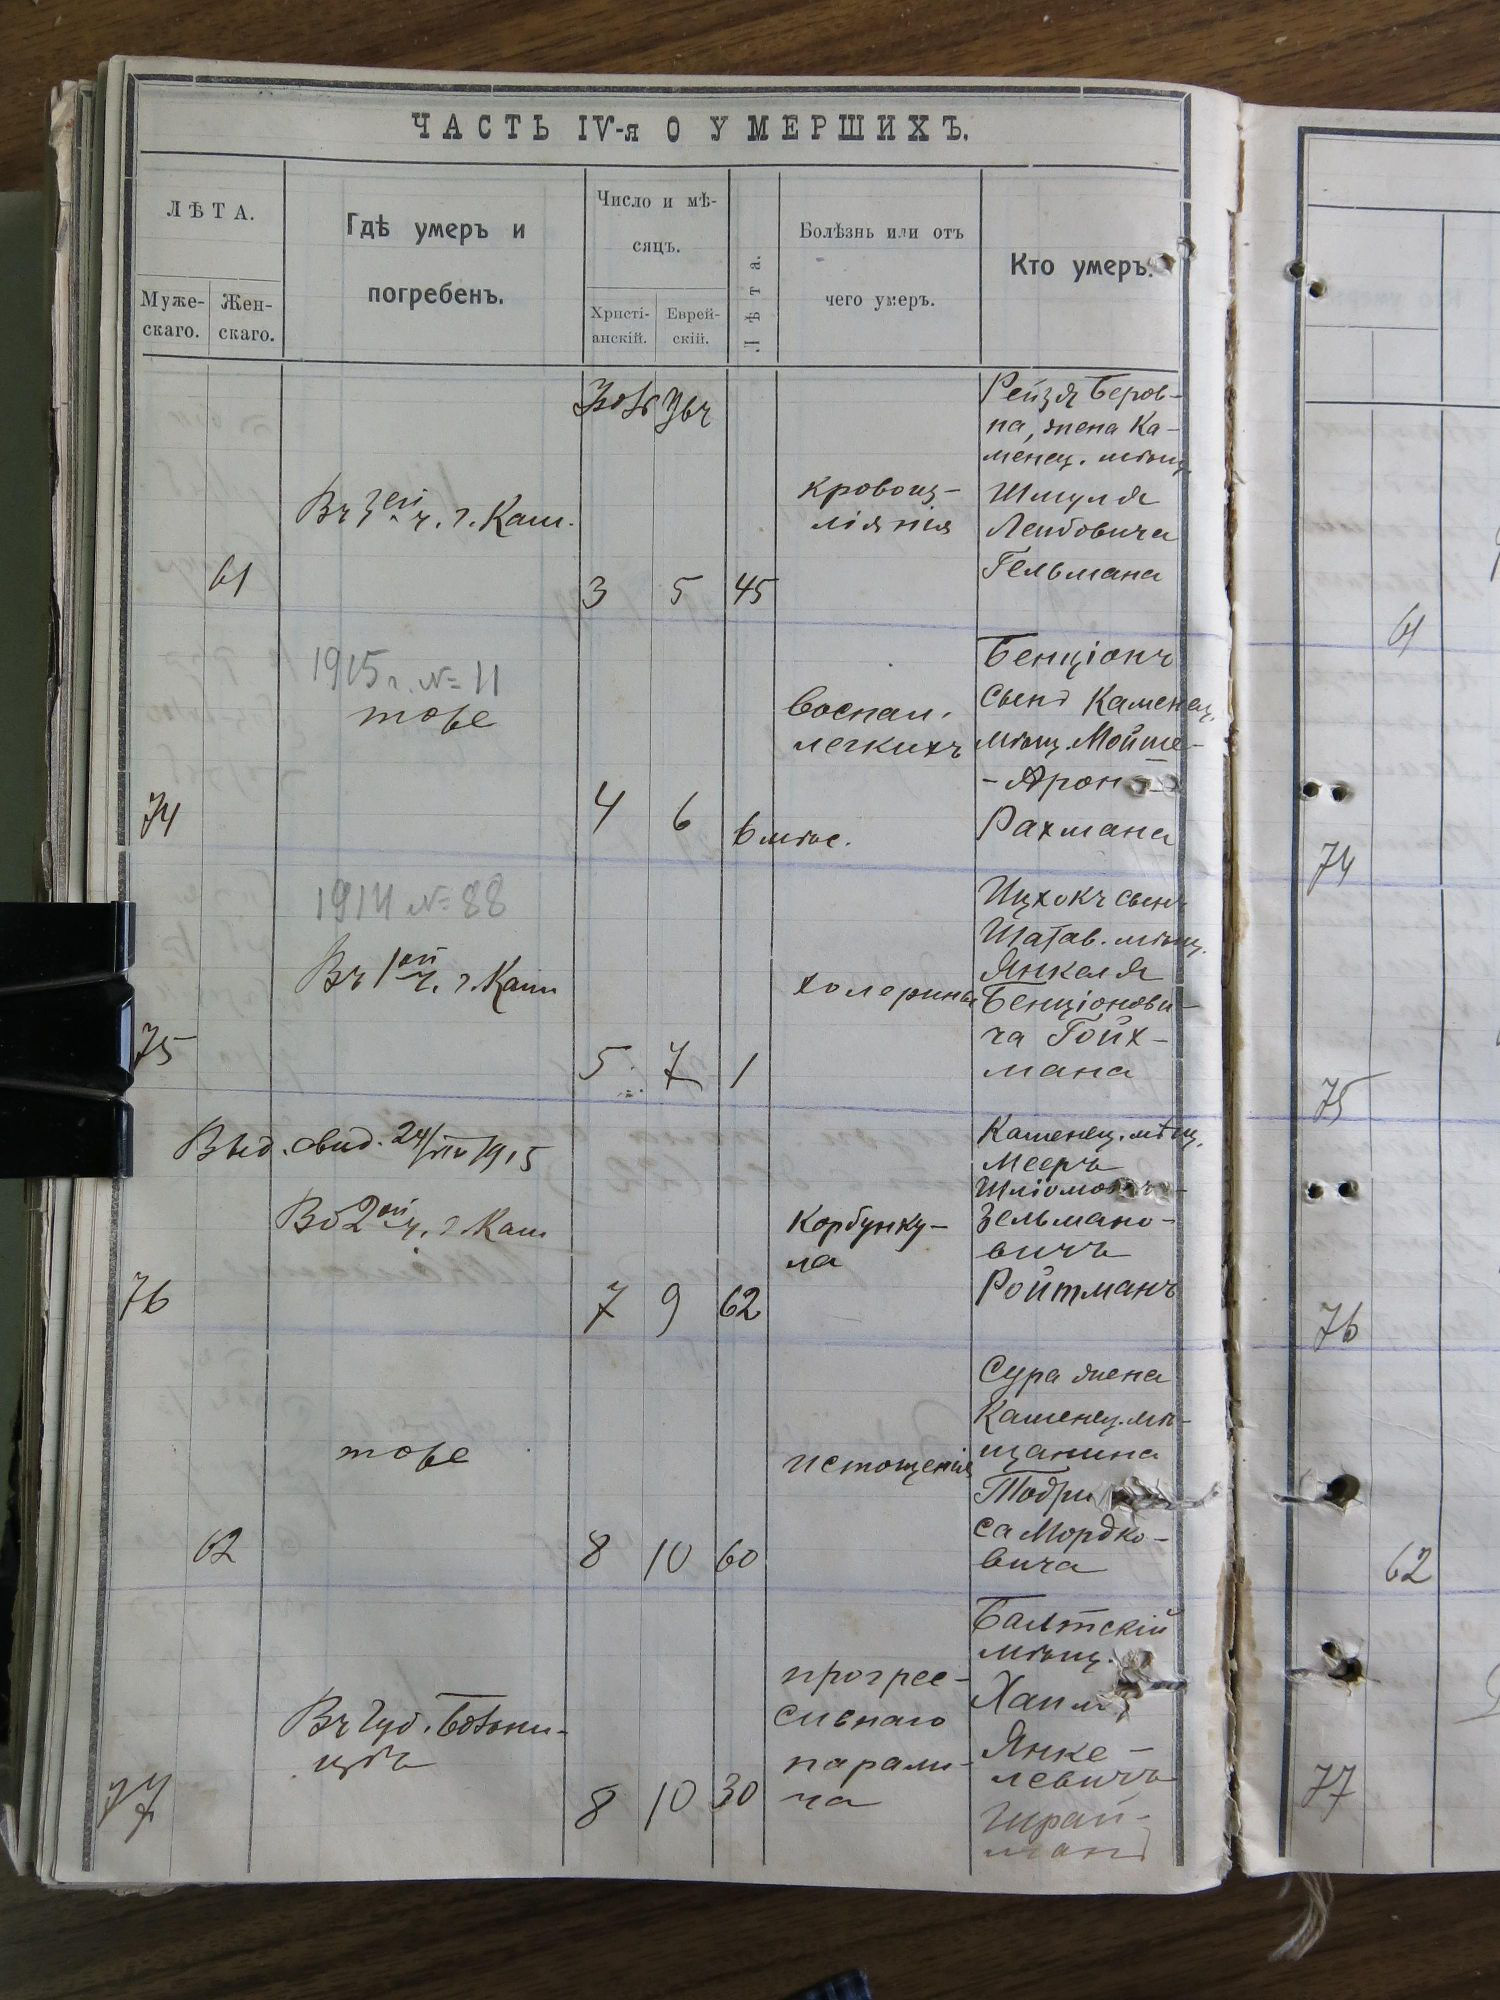 ЧАСТЬ IV-я О УМЕРШИХЪ.
ЛѢТА.
Муже-
скаго.
Жен-
скаго.
Гдѣ умеръ и
погребенъ.
Число и мѣ-
сяцъ.
Христі-
анскій.
Еврей-
скій.
Лѣта.
Болѣзнь или отъ
чего умеръ.
Кто умеръ.
61
Въ 3ей ч. г. Кам.
3
5
45
кровоиз-
ліянія
Рейзя Беров-
на, жена Ка-
менец. мѣщ.
Шмуля
Лейбовича
Гельмана
74
1915 г. № 11
тоже
4
6
6 мѣс.
воспал.
легкихъ
Бенціонъ
сынъ Каменец.
мѣщ. Мойше-
-Арона
Рахмана
75
1914 № 88
Въ 1ой ч. г. Кам
5
7
1
холерины
Ицхокъ сынъ
Шатав. мѣщ.
Янкеля
Бенціонови-
ча Гойх-
мана
Выд. свид. 24/VIII 1915
76
Во 2ой ч. г. Кам
7
9
62
Корбунку-
ла
Каменец. мѣщ.
Мееръ
Зельмано-
вичъ
Ройтманъ
62
тоже
8
10
60
истощенія
Сура жена
Каменец. мѣ-
щанина
Тодри
са Мордко-
вича
77
Въ Губ. Больни-
цѣ
8
10
30
прогрес-
сивнаго
парали-
ча
Балтскій
мѣщ.
Хаим
Янке-
левичъ
Шрай-
манъ
61
74
75
76
62
77